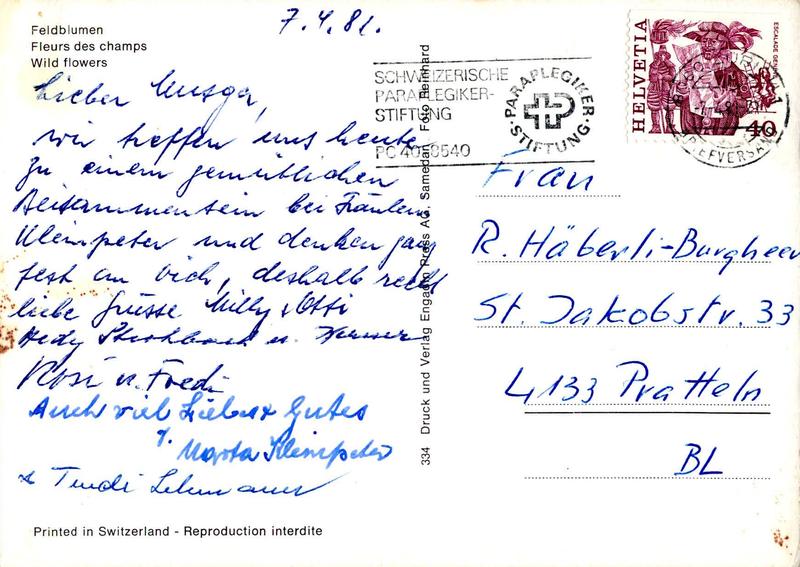 Feldblumen
Fleurs des champs
Wild flowers
7.4.81.
Lieber
wir treffen uns heute
zu einem gemütlichen
Beisammensein bei Fräulein
Kleinpeter und denken ganz
fest an Dich, deshalb recht
liebe Grüsse Milly & Otti
Hedy u. Werner
Rosi u. Fredi
Auch viel Liebes & Gutes
Marta Kleinpeter
& Trudi Lehmann
Printed in Switzerland - Reproduction interdite
334 Druck und Verlag Engadin Press AG, Samedan Foto Reinhard
SCHWEIZERISCHE
PARAPLEGIKER-
STIFTUNG
PC 40-8540
PARAPLEGIKER-STIFTUNG
HELVETIA
40
BRIEFVERSAND
Frau
R. Häberli-Burgheer
St. Jakobstr. 33
4133 Pratteln
BL